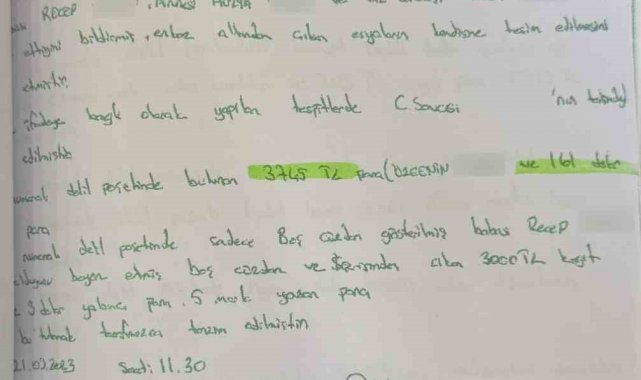 RECEP ANNESİ HÜLYA
ettiğini bildirmiş, enkaz altından çıkan eşyaların kendisine teslim edilmesini
etmiştir.
ifadeye bağlı olarak yapılan tespitlerde C.Savcısı 'nın
edilmiştir
delil poşetinde bulunan 3745 TL para ( ve 161 dolar
para
numaralı delil poşetinde sadece Boş cüzdan gösterilmiş babası Recep
olduğunu beyan etmiş boş cüzdan ve içerisinden çıkan 3000 TL kağıt
3 dolar yabancı para, 5 mark yazan para
tutanak tarafımızca tanzim edilmiştir
21.02.2023 Saat: 11.30